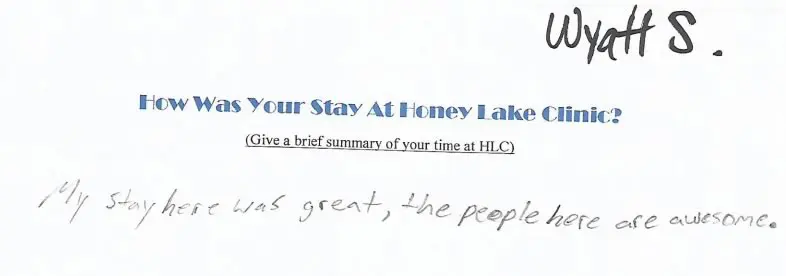 Wyatt S.
How Was Your Stay At Honey Lake Clinic?
(Give a brief summary of your time at HLC)
My stay here was great, the people here are awesome.